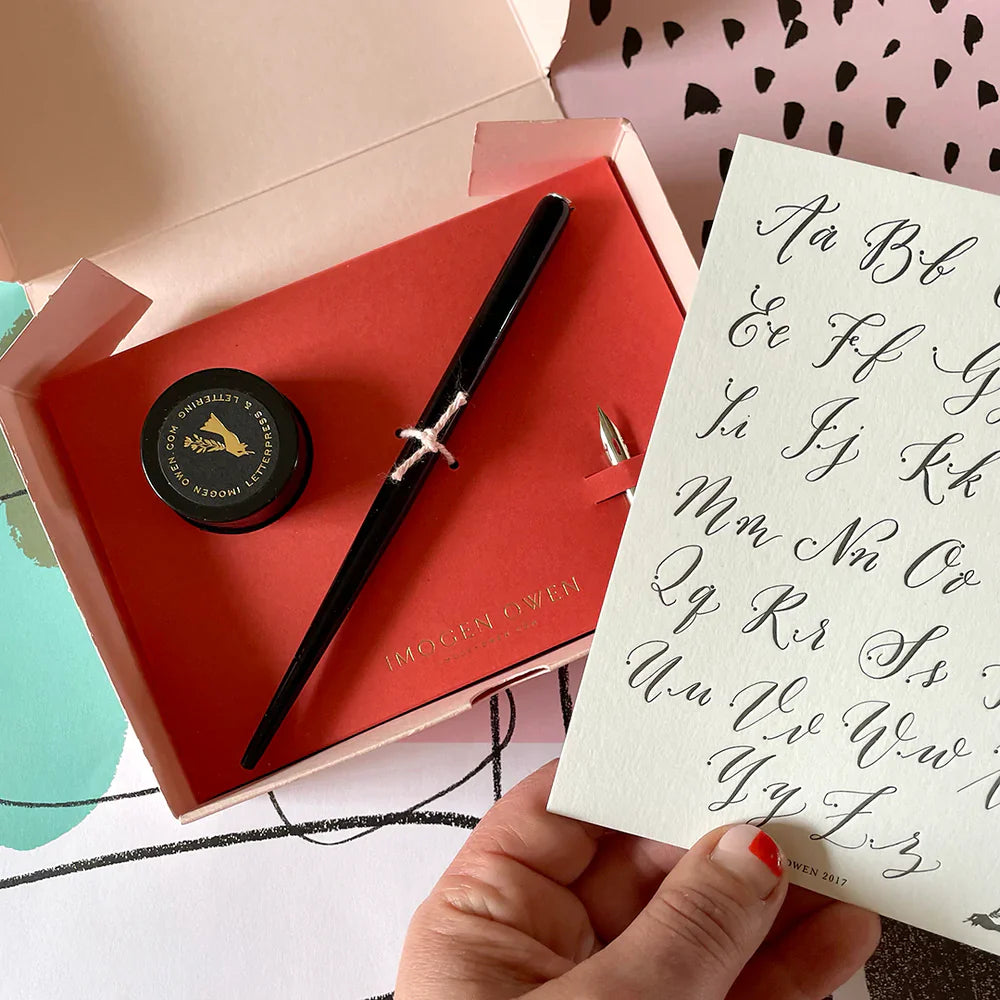 IMOGEN OWEN.COM
LETTERPRESS & LETTERING
IMOGEN OWEN
Aa Bb
Ee Ff G
Ii Jj Kk
Mm Nn Oo
Qq Rr Ss
Uu Vv Ww
Yy Zz
OWEN 2017